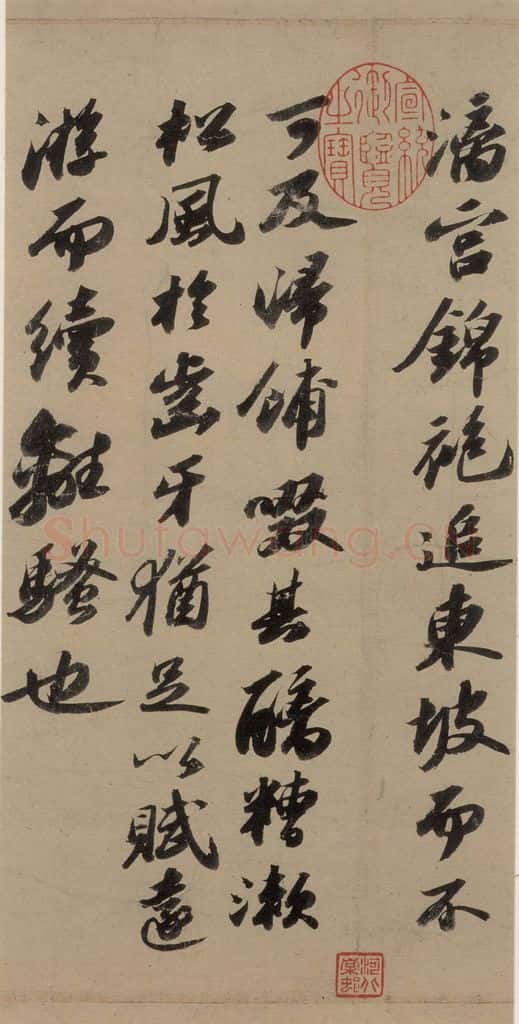 漓宮錦袍追東坡而不
可及歸餔啜其醨糟漱
松風於齒牙猶足以賦遠
游而續離騷也
宣統御覽之寶
河北棠邨
Shufawang.cn